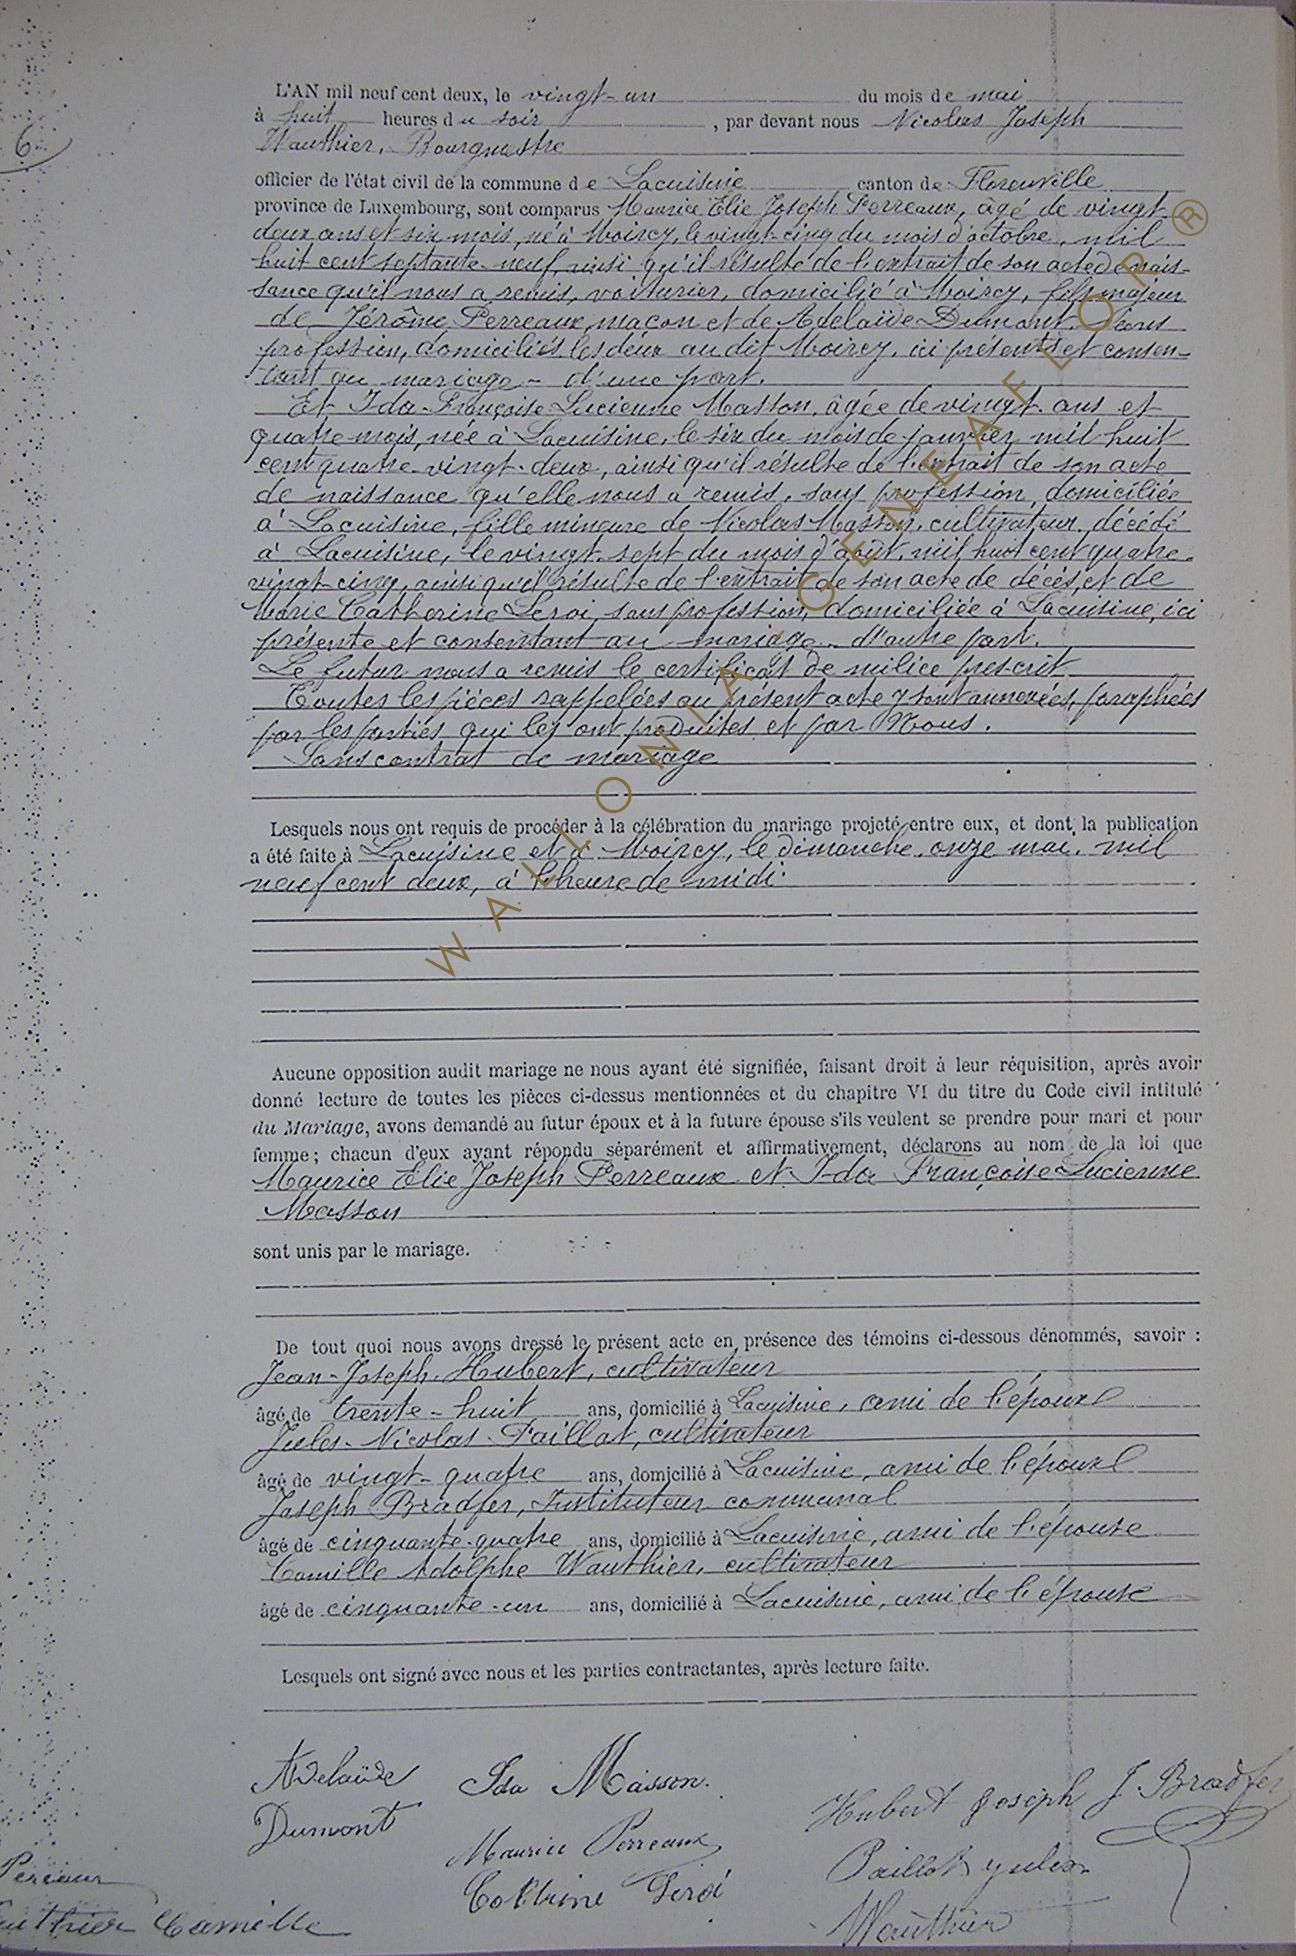 L'AN mil neuf cent deux, le vingt-un du mois de mai
à huit heures du soir, par devant nous Nicolas Joseph
6
Wauthier, Bourgmestre
officier de l'état civil de la commune de Lacuisine canton de Florenville
province de Luxembourg, sont comparus Maurice Elie Joseph Perreaux, âgé de vingt-
deux ans et six mois, né à Moircy, le vingt-cinq du mois d'octobre, mil
huit cent septante-neuf, ainsi qu'il résulte de l'extrait de son acte de nais-
sance qu'il nous a remis, voiturier, domicilié à Moircy, fils majeur
de Jérôme Perreaux, maçon et de Adelaïde Dumont, sans
profession, domiciliés les deux au dit Moircy, ici présents et consen-
tant au mariage - d'une part.
Et Ida-Françoise Lucienne Masson, âgée de vingt ans et
quatre mois, née à Lacuisine, le six du mois de janvier, mil huit
cent quatre-vingt-deux, ainsi qu'il résulte de l'extrait de son acte
de naissance qu'elle nous a remis, sans profession, domiciliée
à Lacuisine, fille mineure de Nicolas Masson, cultivateur, décédé
à Lacuisine, le vingt-sept du mois d'août, mil huit cent quatre-
vingt-cinq, ainsi qu'il résulte de l'extrait de son acte de décès, et de
Marie Catherine Leroi, sans profession, domiciliée à Lacuisine, ici
présente et consentant au mariage - d'autre part.
Le futur nous a remis le certificat de milice prescrit
Toutes les pièces rappelées au présent acte y sont annexées, paraphées
par les parties qui les ont produites et par Nous.
Sans contrat de mariage
Lesquels nous ont requis de procéder à la célébration du mariage projeté entre eux, et dont la publication
a été faite à Lacuisine et à Moircy, le dimanche, onze mai, mil
neuf cent deux, à l'heure de midi.
WALLONIA GENEAFLOR ®
Aucune opposition audit mariage ne nous ayant été signifiée, faisant droit à leur réquisition, après avoir
donné lecture de toutes les pièces ci-dessus mentionnées et du chapitre VI du titre du Code civil intitulé
du Mariage, avons demandé au futur époux et à la future épouse s'ils veulent se prendre pour mari et pour
femme; chacun d'eux ayant répondu séparément et affirmativement, déclarons au nom de la loi que
Maurice Elie Joseph Perreaux et Ida Françoise Lucienne
Masson
sont unis par le mariage.
De tout quoi nous avons dressé le présent acte en présence des témoins ci-dessous dénommés, savoir :
Jean-Joseph Hubert, cultivateur
âgé de trente-huit ans, domicilié à Lacuisine, ami de l'époux
Jules-Nicolas-Paillot, cultivateur
âgé de vingt-quatre ans, domicilié à Lacuisine, ami de l'époux
Joseph Bradfer, Instituteur communal
âgé de cinquante-quatre ans, domicilié à Lacuisine, ami de l'épouse
Camille Adolphe Wauthier, cultivateur
âgé de cinquante-un ans, domicilié à Lacuisine, ami de l'épouse
Lesquels ont signé avec nous et les parties contractantes, après lecture faite.
Adelaïde Ida Masson. Hubert Joseph J. Bradfer
Dumont Maurice Perreaux Paillot Jules
Catherine Leroi
Wauthier Camille Wauthier